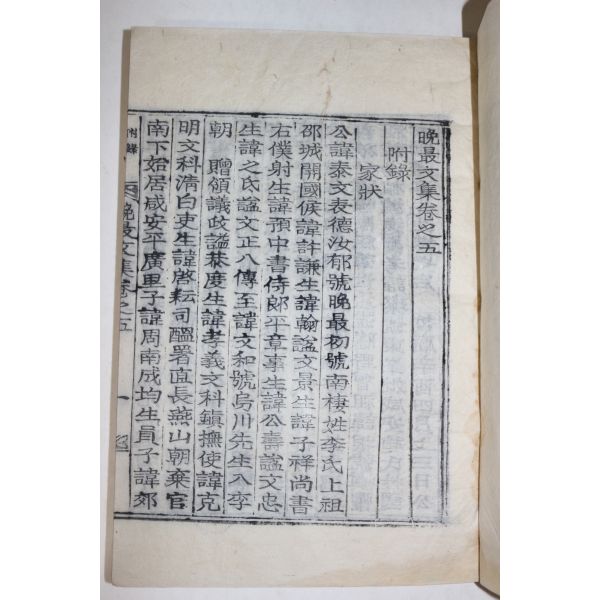 晩最文集卷之五
附錄
家狀
公諱泰文表德汝郁號晩最初號南棲姓李氏上祖
邵城開國侯諱許謙生諱翰謚文景生諱子祥尚書
右僕射生諱預中書侍郎平章事生諱公壽謚文忠
生諱之氐謚文正八傳至諱文和號烏川先生入李
朝 贈領議政謚恭度生諱孝義文科鎭撫使諱克
明文科清白吏生諱啓耘司醞署直長燕山朝棄官
南下始居咸安平廣里子諱周南成均生員子諱郊
附錄
晩最文集卷之五
一